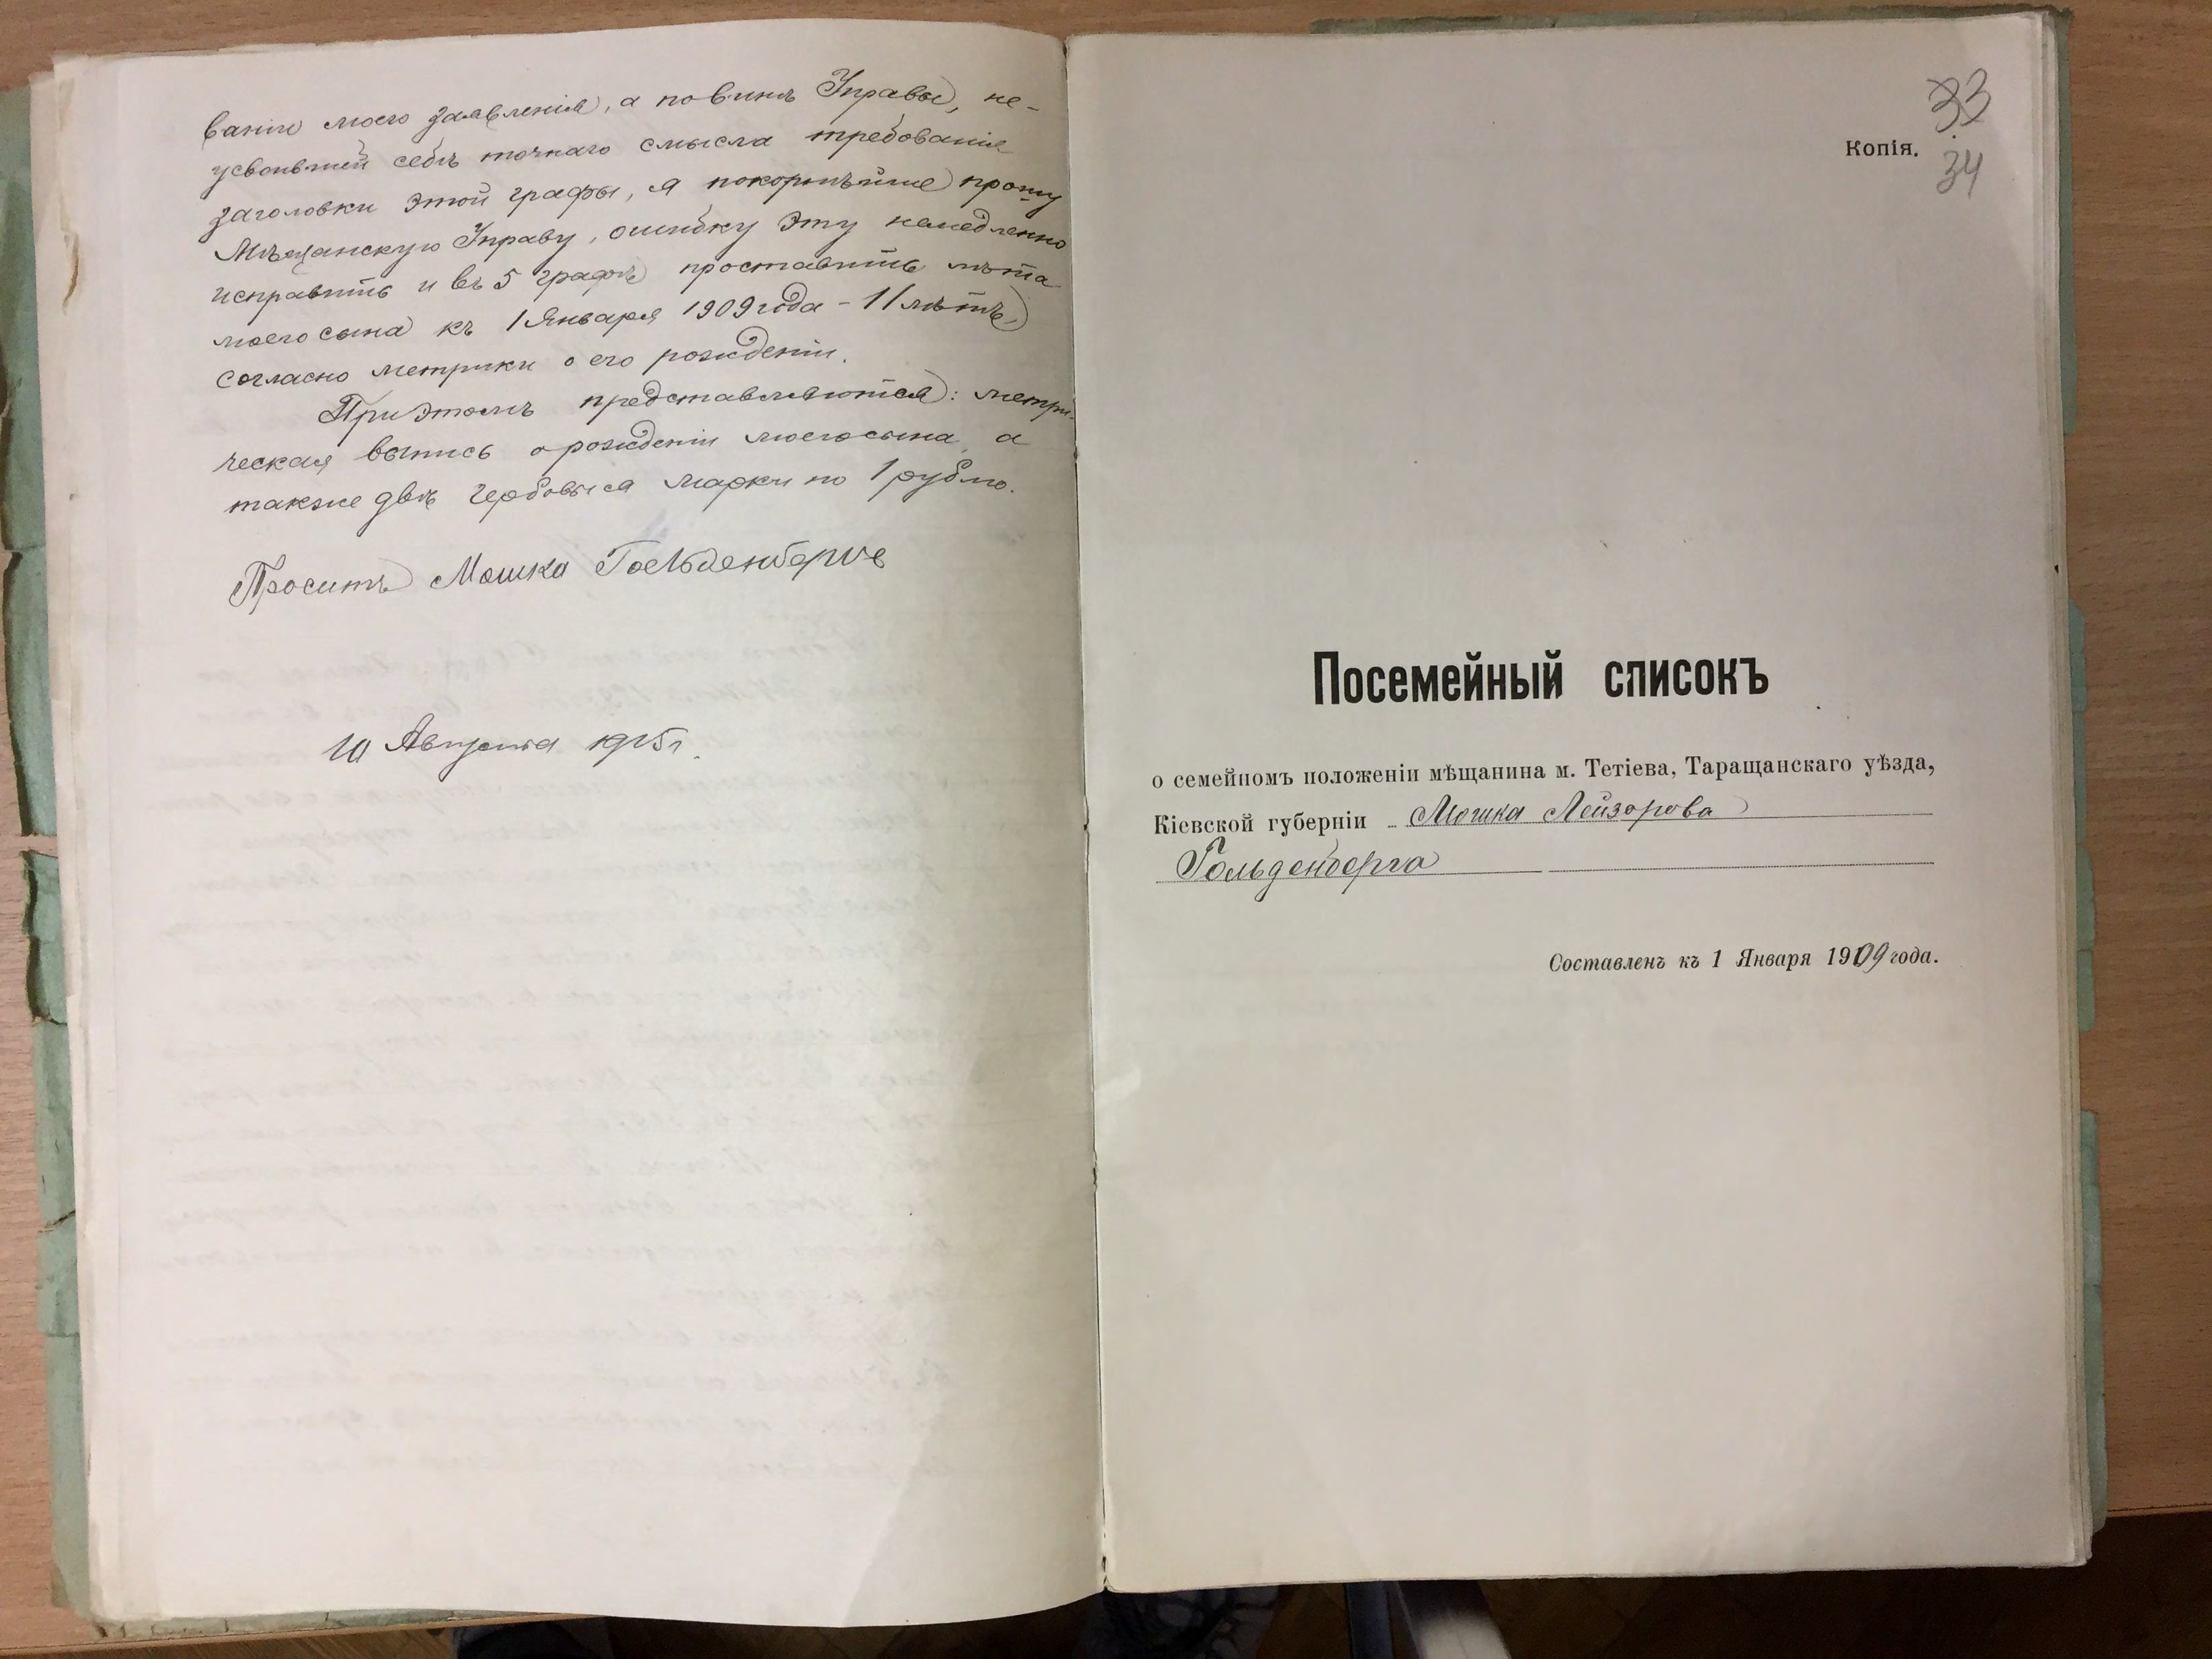 ваніи моего заявленія, а по винѣ Управы, не-
усвоившей себѣ точнаго смысла требованія
заголовки этой графы, я покорнѣйше прошу
Мѣщанскую Управу, ошибку эту немедленно
исправить и въ 5 графѣ проставить лѣта
моего сына къ 1 Января 1909 года - 11 лѣтъ,
согласно метрики о его рожденіи.
При этомъ представляются: метри-
ческая выпись о рожденіи моего сына, а
также двѣ гербовыя марки по 1 рублю.
Проситъ Мошка Гольденбергъ
10 Августа 1915 г.
33
Копія.
34
Посемейный списокъ
о семейномъ положеніи мѣщанина м. Тетіева, Таращанскаго уѣзда,
Кіевской губерніи Мошка Лейзорова
Гольденберга
Составленъ къ 1 Января 1909 года.